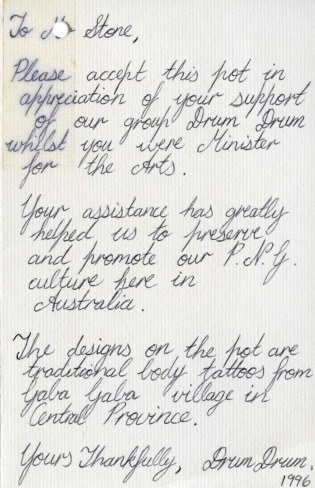 To Mr Stone,
Please accept this pot in
appreciation of your support
of our group Drum Drum
whilst you were Minister
for the Arts.
Your assistance has greatly
helped us to preserve
and promote our P.N.G.
culture here in
Australia.
The designs on the pot are
traditional body tattoos from
Gaba Gaba village in
Central Province.
Yours Thankfully, Drum Drum.
1996